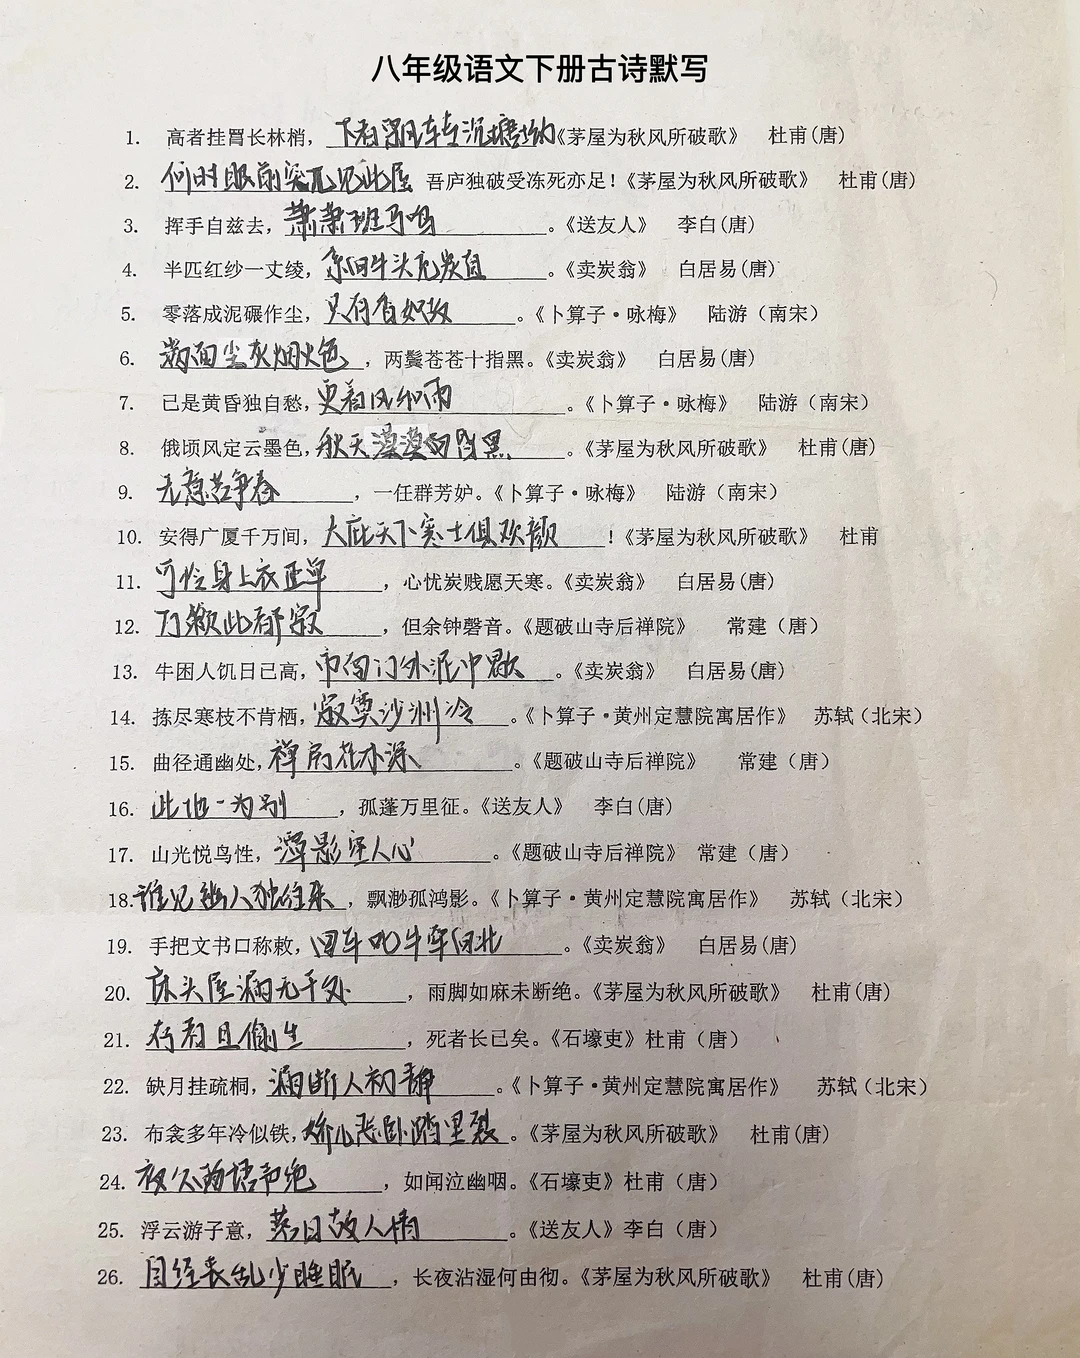 八年级语文下册古诗默写
1. 高者挂罥长林梢，下者飘转沉塘坳《茅屋为秋风所破歌》 杜甫(唐)
2. 何时眼前突兀见此屋 吾庐独破受冻死亦足！《茅屋为秋风所破歌》 杜甫(唐)
3. 挥手自兹去，萧萧班马鸣。《送友人》 李白(唐)
4. 半匹红纱一丈绫，系向牛头充炭直。《卖炭翁》 白居易(唐)
5. 零落成泥碾作尘，只有香如故。《卜算子·咏梅》 陆游（南宋）
6. 满面尘灰烟火色，两鬓苍苍十指黑。《卖炭翁》 白居易(唐)
7. 已是黄昏独自愁，更着风和雨。《卜算子·咏梅》 陆游（南宋）
8. 俄顷风定云墨色，秋天漠漠向昏黑。《茅屋为秋风所破歌》 杜甫(唐)
9. 无意苦争春，一任群芳妒。《卜算子·咏梅》 陆游（南宋）
10. 安得广厦千万间，大庇天下寒士俱欢颜！《茅屋为秋风所破歌》 杜甫
11. 可怜身上衣正单，心忧炭贱愿天寒。《卖炭翁》 白居易(唐)
12. 万籁此都寂，但余钟磬音。《题破山寺后禅院》 常建（唐）
13. 牛困人饥日已高，市南门外泥中歇。《卖炭翁》 白居易(唐)
14. 拣尽寒枝不肯栖，寂寞沙洲冷。《卜算子·黄州定慧院寓居作》 苏轼（北宋）
15. 曲径通幽处，禅房花木深。《题破山寺后禅院》 常建（唐）
16. 此地一为别，孤蓬万里征。《送友人》 李白(唐)
17. 山光悦鸟性，潭影空人心。《题破山寺后禅院》 常建（唐）
18. 谁见幽人独往来，飘渺孤鸿影。《卜算子·黄州定慧院寓居作》 苏轼（北宋）
19. 手把文书口称敕，回车叱牛牵向北。《卖炭翁》 白居易(唐)
20. 床头屋漏无干处，雨脚如麻未断绝。《茅屋为秋风所破歌》 杜甫(唐)
21. 存者且偷生，死者长已矣。《石壕吏》杜甫（唐）
22. 缺月挂疏桐，漏断人初静。《卜算子·黄州定慧院寓居作》 苏轼（北宋）
23. 布衾多年冷似铁，娇儿恶卧踏里裂。《茅屋为秋风所破歌》 杜甫(唐)
24. 夜久语声绝，如闻泣幽咽。《石壕吏》杜甫（唐）
25. 浮云游子意，落日故人情。《送友人》李白（唐）
26. 自经丧乱少睡眠，长夜沾湿何由彻。《茅屋为秋风所破歌》 杜甫(唐)